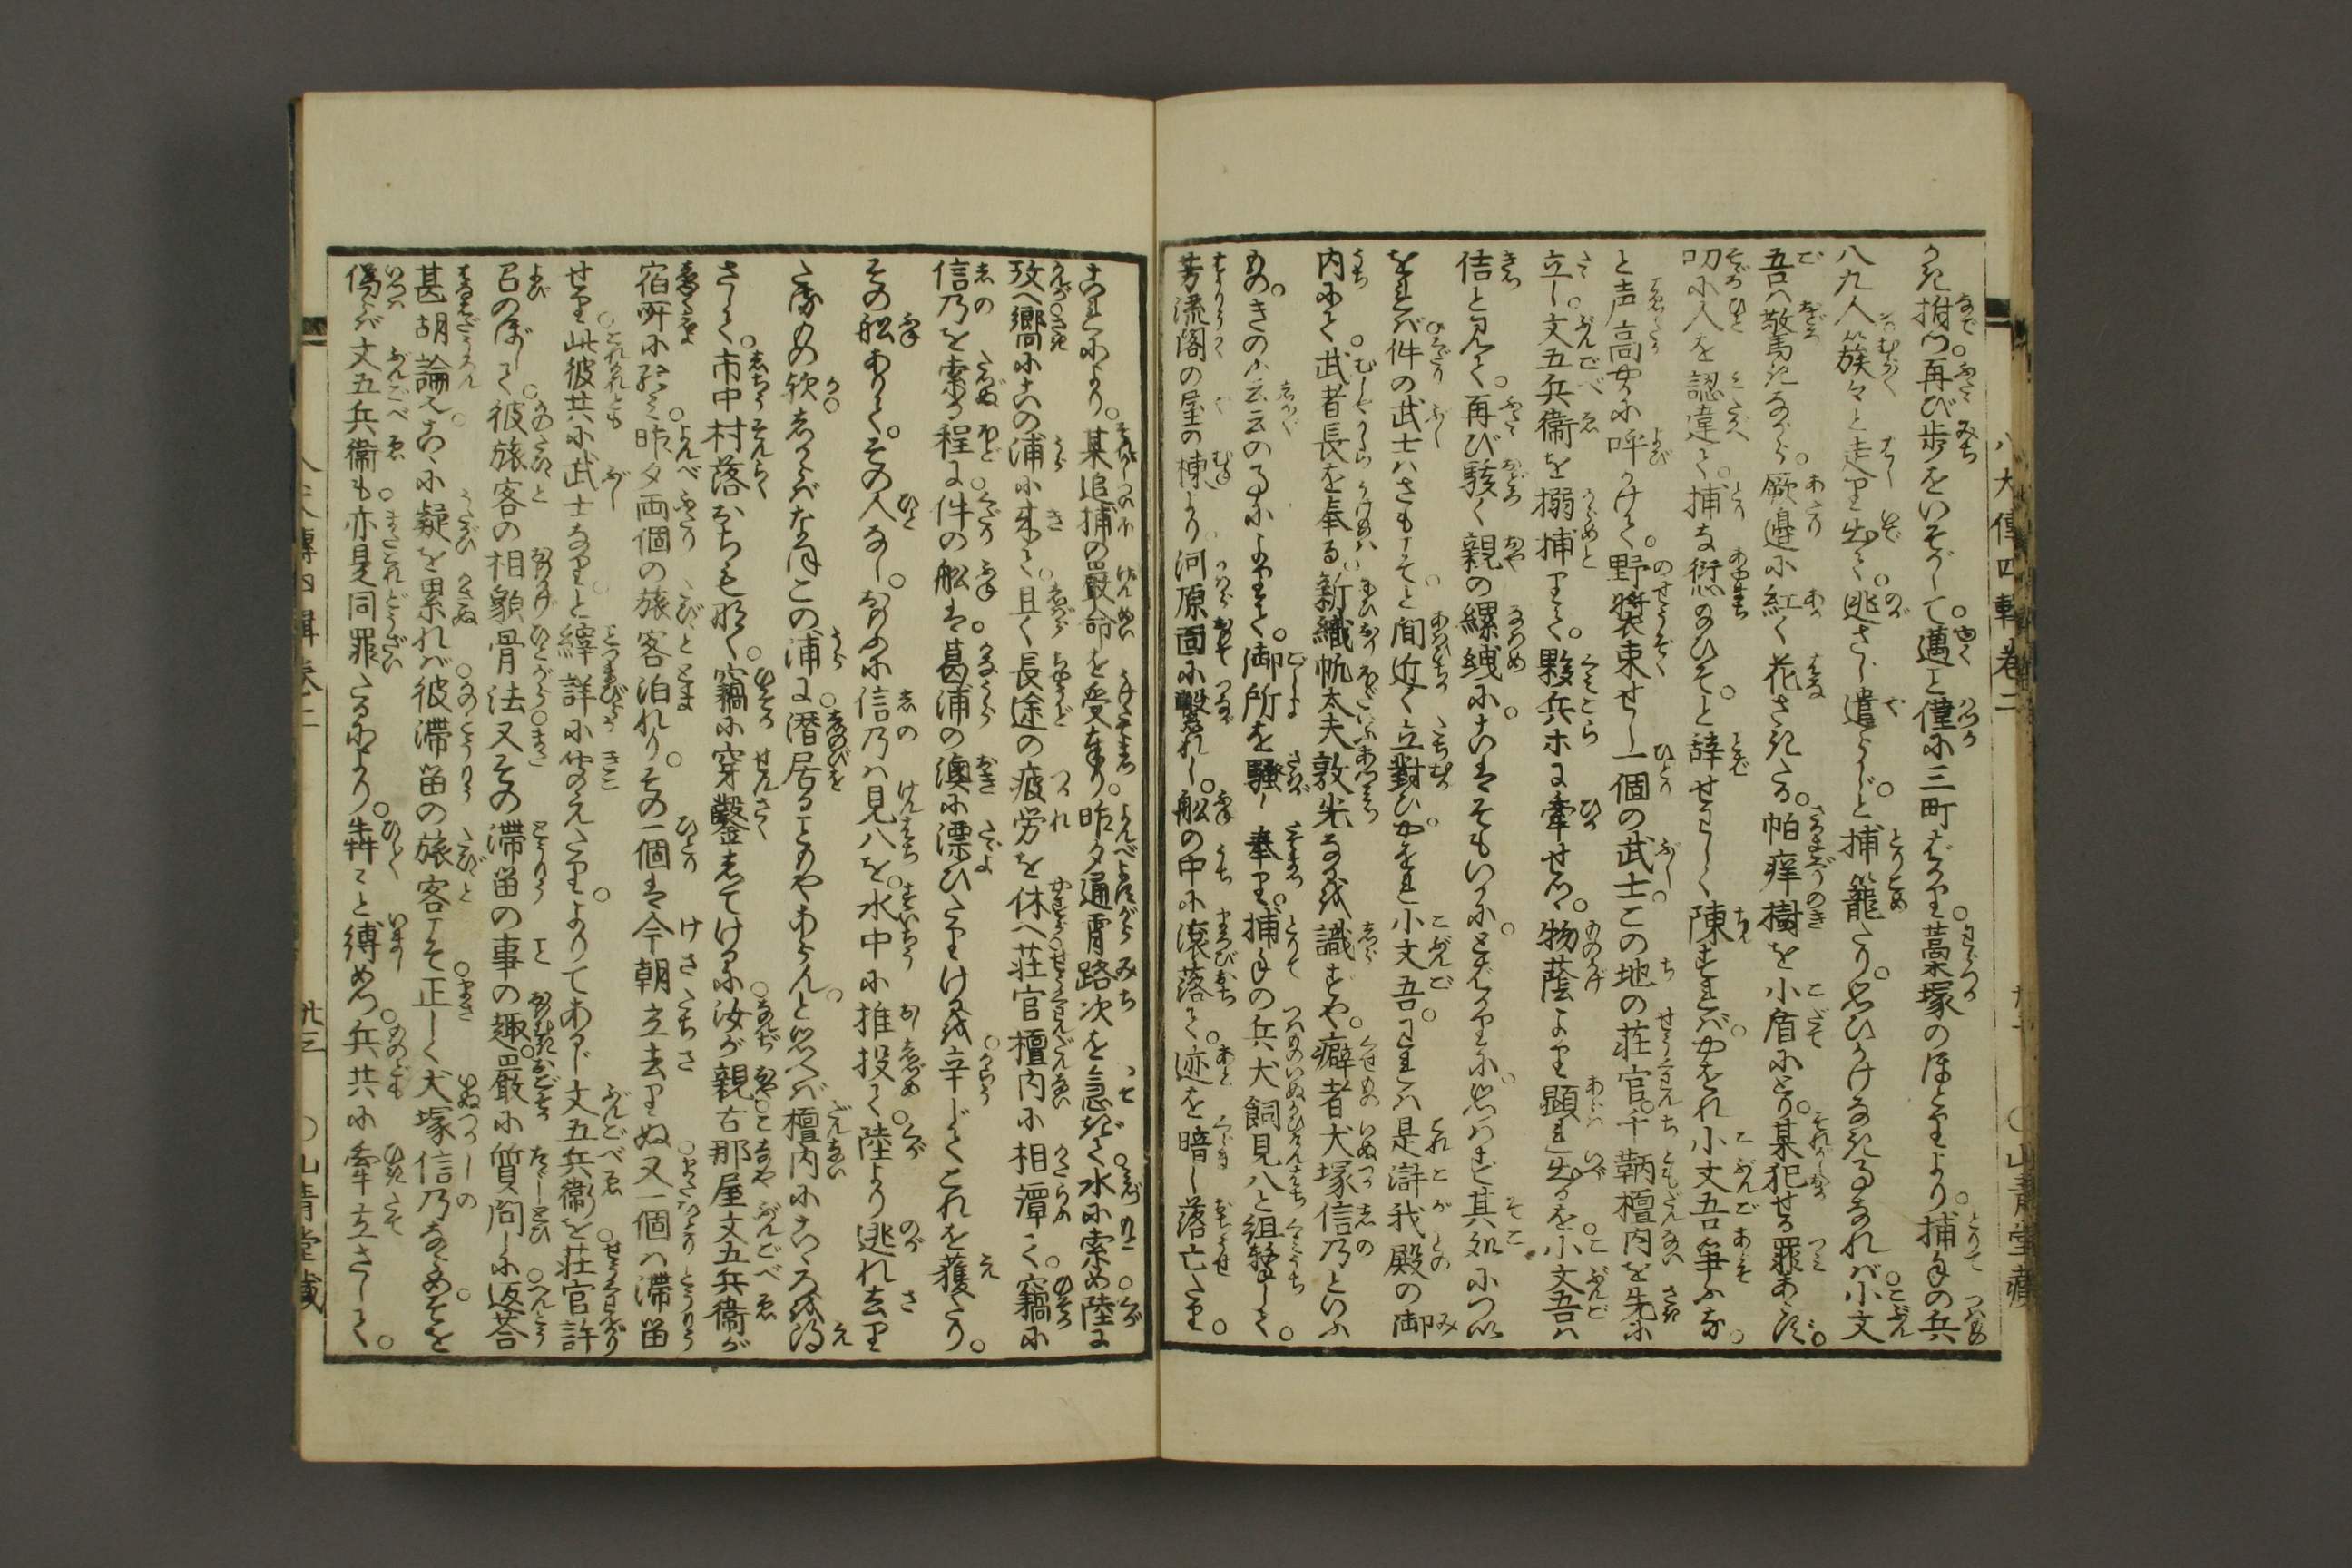 八犬傳四輯巻二
○山青堂藏
うち拊つ再び歩をいそがして。邁こと僅に三町ばかり。藁塚のほとりより。捕手の兵
八九人簇々と走り出て。逃さじ遣らじと捕籠たり。思ひかけなき事なれば小文
吾は驚きながら。厥邉に紅く花さきたる。帕痒樹を小盾にとり。某犯せる罪あらず。
叨に人を認違て。捕な愆のひそと辞せわしく陳ずれば。やをれ小文吾筭ふな。
と声高やかに呼かけて。野裝束せし一個の武士。この地の荘官千鞆檀内を先に
立し。文五兵衞を搦捕りて。夥兵ホに牽せつ。物蔭より顕れ出るを小文吾は
佶と見て。再び駭く親の縲絏に。こはそもいかに。とばかりに。思はず其処についゐ
をれば件の武士はさもこそと間近く立對ひ。やをれ小文吾。われは是滸我殿の御
内にて。武者長を奉る。新織帆太夫敦光なるを識ずや。癖者犬塚信乃といふ
もの。きのふ云云の事によりて。御所を騒し奉り。捕手の兵犬飼見八と組撃して。
芳流閣の屋の棟より河原面に繋れし。舩の中に滾落て。迹を暗し落亡たり。
これにより。某追捕の嚴命を受奉り。昨夕通宵路次を急ぎて。水に索め陸に
攷へ。郷にこの浦に来て。且く長途の疲労を休へ。荘官檀内に相譚て。竊に
信乃を索る程に。件の舩は。葛浦の澳に漂ひたりけるを辛じてこれを獲たり。
その舩ありて。その人なし。おもふに信乃は見八を。水中に推投て。陸より逃れ去り
たるもの欤。しからばなほこの浦に。潜居ることもやあらんと思へば檀内にこゝろを得
さして。市中村落おちもなく。竊に穿鑿してけるに。汝が親古那屋文五兵衞が
宿所にのみ。昨夕両個の旅客泊れり。その一個は今朝立去りぬ。又一個は滞畄
せり。此彼共に武士なりと縡詳に聞えたり。よりてあるじ文五兵衞を荘官許
召のぼして。彼旅客の相貌骨法又その滞畄の事の趣。嚴に質問しに返荅
甚胡論也。こゝに疑を累れば彼滞畄の旅客こそ正しく犬塚信乃ならめ。そを
偽らば文五兵衞も。亦是同罪たるにより。犇々と縛めつ。兵共に牽立さして。
八犬傳四輯巻二
廿三
○山青堂藏